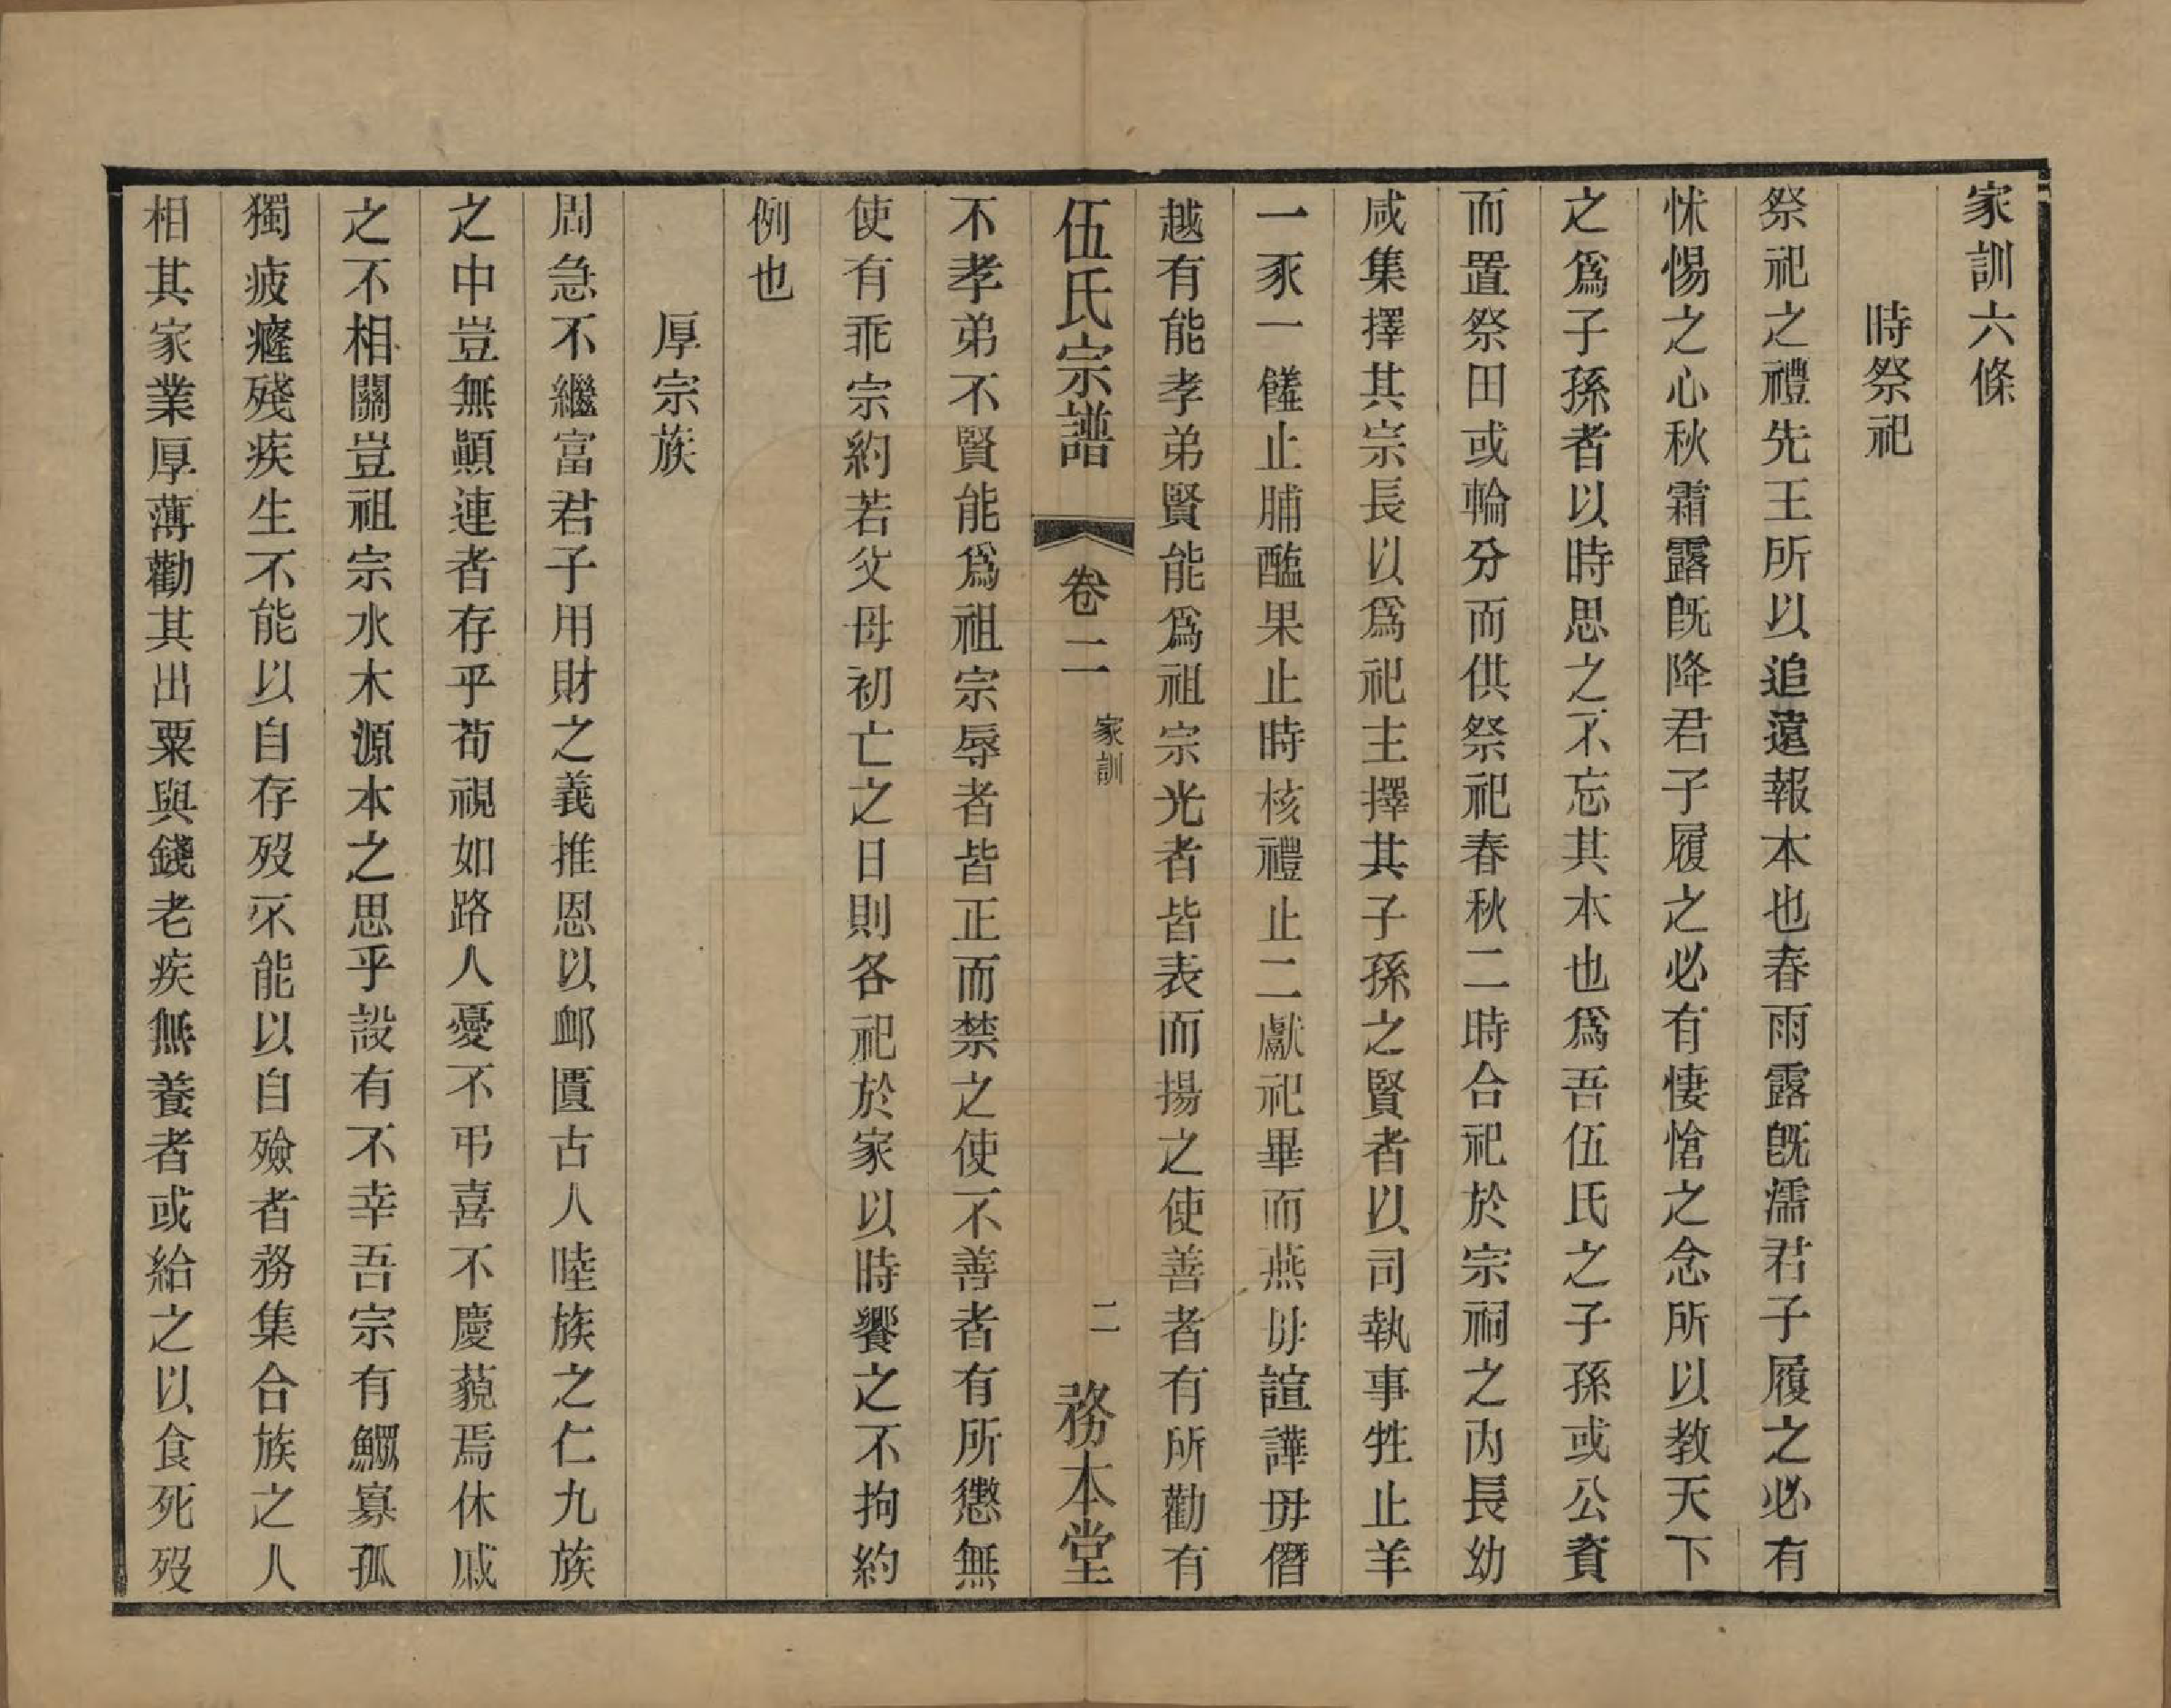 家訓六條
時祭祀
祭祀之禮先王所以追遠報本也春雨露旣濡君子履之必有
怵惕之心秋霜露旣降君子履之必有悽愴之念所以教天下
之爲子孫者以時思之不忘其本也爲吾伍氏之子孫或公資
而置祭田或輪分而供祭祀春秋二時合祀於宗祠之內長幼
咸集擇其宗長以爲祀主擇其子孫之賢者以司執事牲止羊
一豕一饈止脯醢果止時核禮止二獻祀畢而燕毋諠譁毋僭
越有能孝弟賢能爲祖宗光者皆表而揚之使善者有所勸有
伍氏宗譜 卷二 家訓 二 務本堂
不孝弟不賢能爲祖宗辱者皆正而禁之使不善者有所懲無
使有乖宗約若父母初亡之日則各祀於家以時饗之不拘約
例也
厚宗族
周急不繼富君子用財之義推恩以卹匱古人睦族之仁九族
之中豈無顚連者存乎苟視如路人憂不弔喜不慶藐焉休戚
之不相關豈祖宗水木源本之思乎設有不幸吾宗有鰥寡孤
獨疲癃殘疾生不能以自存歿不能以自殮者務集合族之人
相其家業厚薄勸其出粟與錢老疾無養者或給之以食死歿